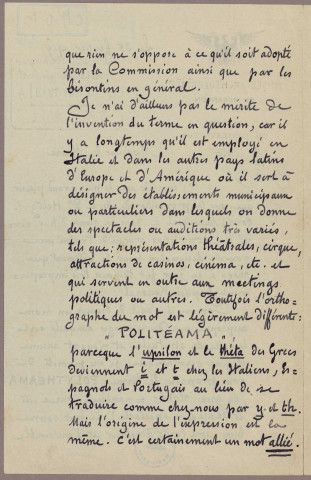 que rien ne s'oppose à ce qu'il soit adopté
par la Commission ainsi que par les
Bisontins en général.
Je n'ai d'ailleurs pas le mérite de
l'invention du terme en question, car il
y a longtemps qu'il est employé en
Italie et dans les autres pays latins
d'Europe et d'Amérique où il sert à
désigner des établissements municipaux
ou particuliers dans lesquels on donne
des spectacles ou auditions très variés,
tels que; représentations théâtrales, cirque,
attractions de casinos, cinéma, etc. et
qui servent en outre aux meetings
politiques ou autres. Toutefois l'ortho=
graphe du mot est légèrement différente:
"POLITÉAMA",
parceque l'upsilon et le thêta des Grecs
deviennent i et t chez les Italiens, Es-
pagnols et Portugais au lieu de se
traduire comme chez-nous par y et th.
Mais l'origine de l'expression est la
même. C'est certainement un mot allié.